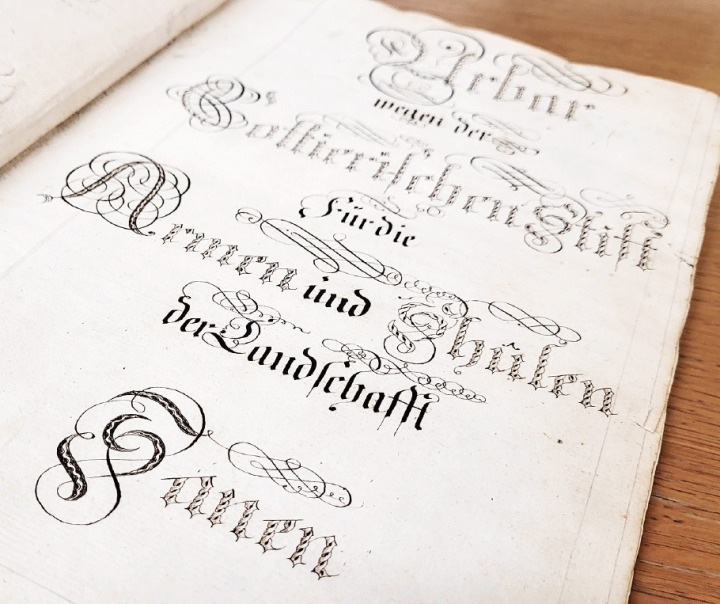 Urbar
wegen der
Cottierischen Stift
Für die
Armen und Schůlen
der Landschafft
Sanen